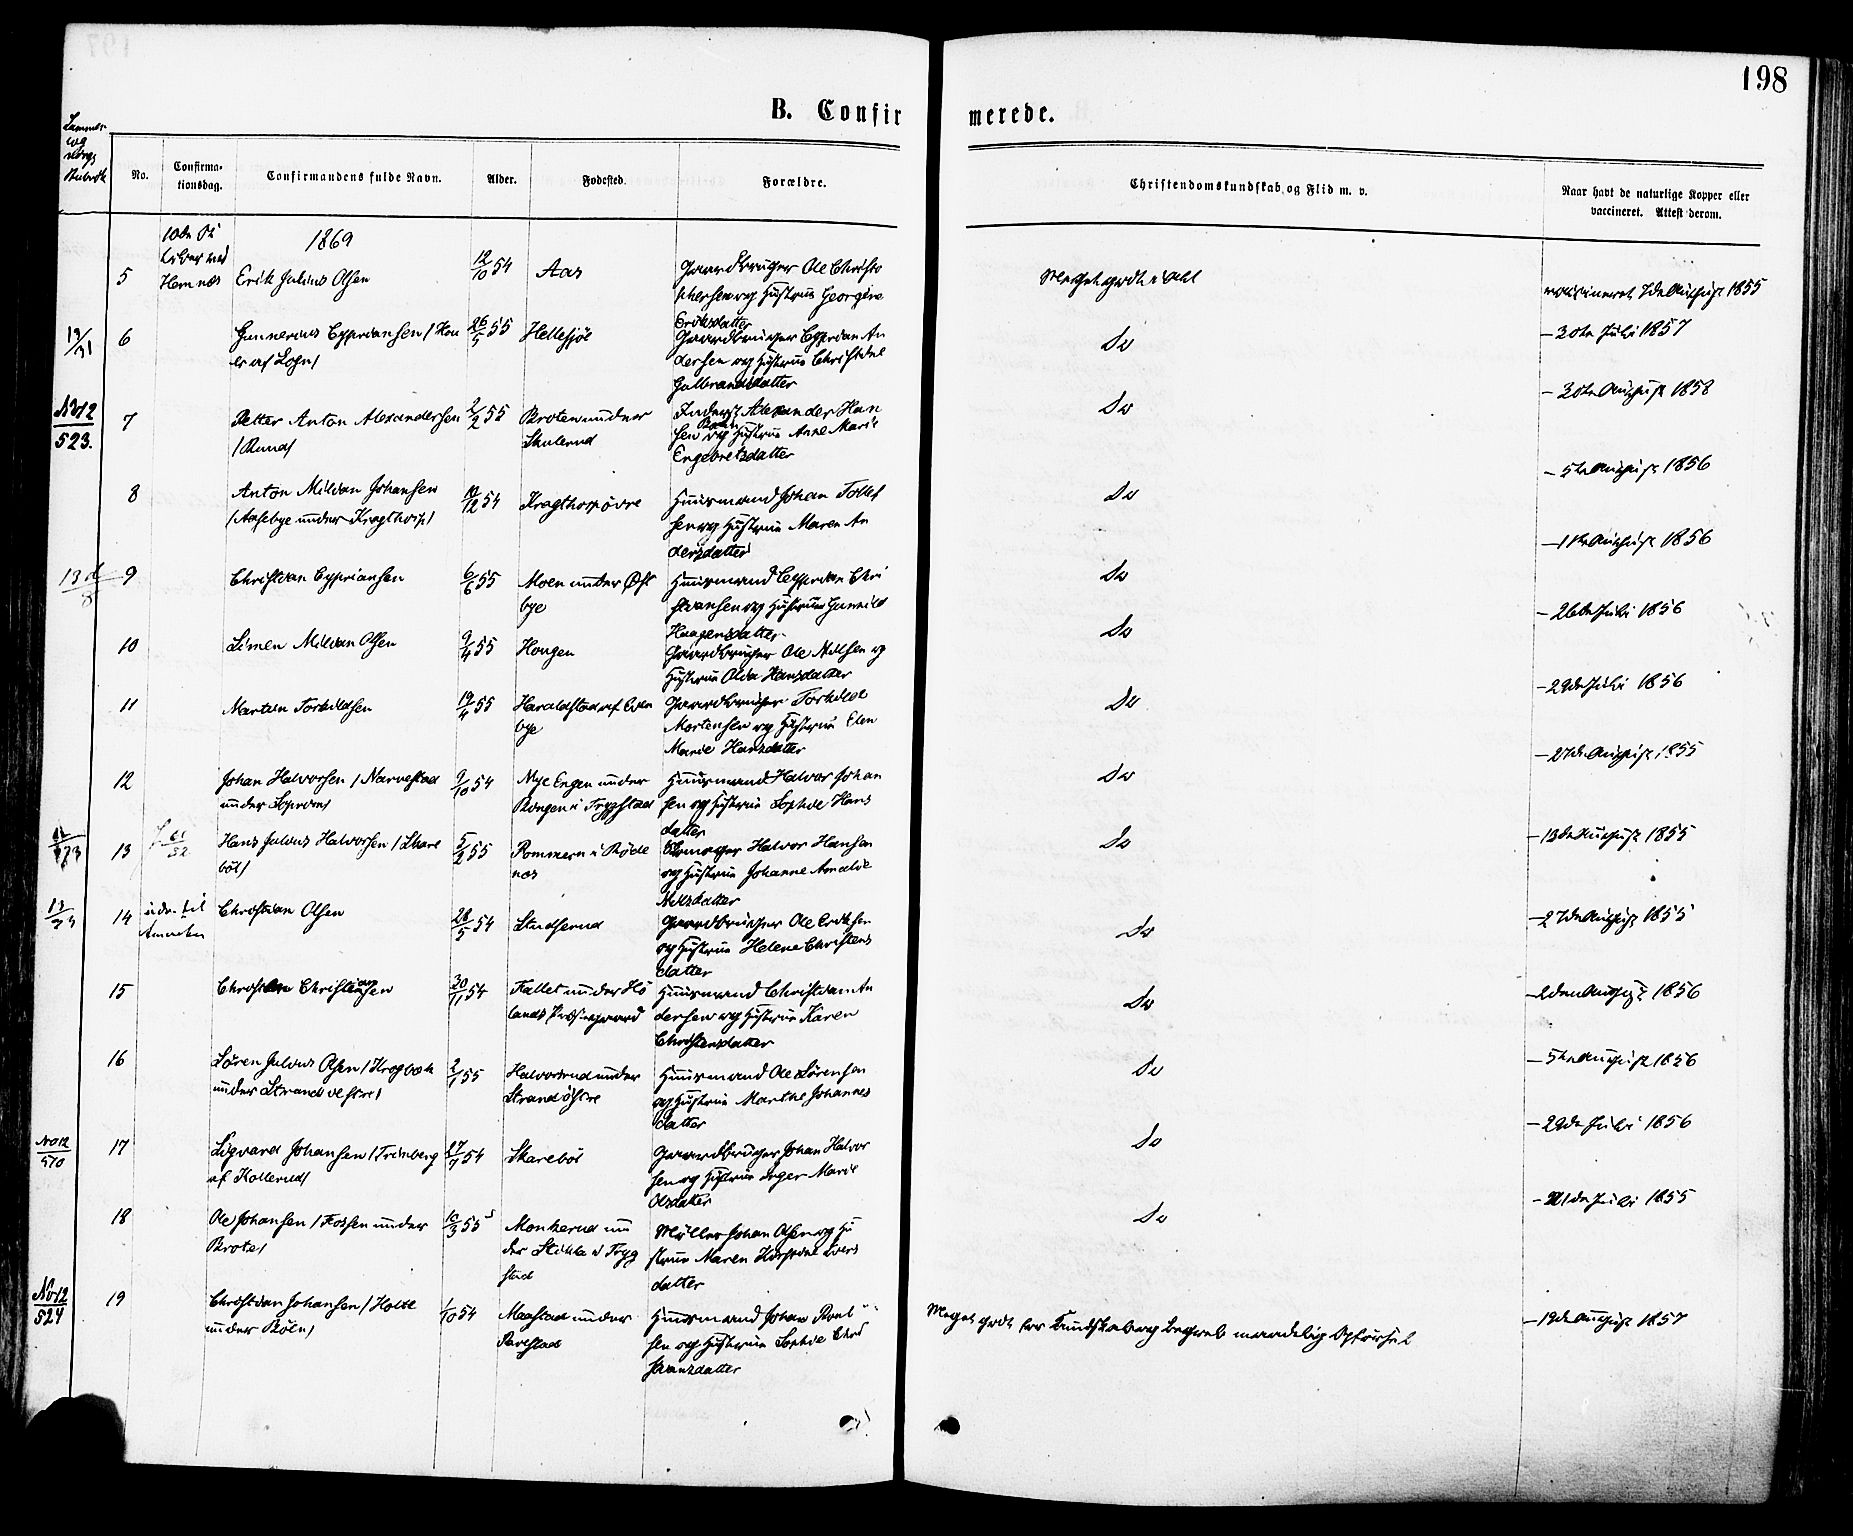 198
B. Confirmerede.
No.
Confirma-
tionsdag.
Confirmandens fulde Navn.
Alder.
Fødested.
Forældre.
Christendomskundskab og Flid m. v.
Naar havt de naturlige Kopper eller
vaccineret. Attest derom.
1869
Hemnæs
5 Erik Julius Olsen 12/10 54 Aas Gaardbruger Ole Christo
phersen og Hustrue Georgine
Eriksdatter
Meget godt i Alt
vaccineret 7de August 1855
6 Gunnerius Cypriansen 26/5 55 Hellesjøe Gaardbruger Cyprian An
dersen og Hustrue Christine
Gulbrandsdatter
Do
– 30te Juli 1857
No 12
523.
7 Petter Anton Alexandersen 2/2 55 Broten under
Skulerud
/Rund/
Inderst Alexander Han
sen og Hustrue Anne Marie
Engebretsdatter
Do
– 30te August 1858
8 Anton Milian Johansen
/Aasebye under Kragthorp/
10/12 54 Kragthorp øvre
Huusmand Johan Tollef
sen og Hustrue Maren An
dersdatter
Do
– 5te August 1856
9 Christian Cypriansen 6/6 55 Moen under Øst
bye
Huusmand Cyprian Chri
stiansen og Hustrue Gunnild
Haagensdatter
Do
– 11te August 1856
10 Simen Milian Olsen 9/4 55 Hougen
Gaardbruger Ole Nillsen og
Hustrue Olia Hansdatter
Do
– 26de Juli 1856
11 Martin Torkildsen 19/4 55 Haraldstad af Evin
bye
Gaardbruger Torkild
Mortensen og Hustrue Elen
Marie Hansdatter
Do
– 29de Juli 1856
12 Johan Halvorsen /Narvestad
9/10 54 Nye Engen under
Bongen i Trygstad
Huusmand Halvor Johan
sen og Hustrue Sophie Hans
datter
Do
– 27de August 1855
13 Hans Julius Halvorsen /Skare
böl/
5/2 55 Pommern i Røde
næs
Halvor Hansen
og Hustrue Johanne Amalie
Nilsdatter
Do
– 13de August 1855
udv. til
Amerika
14 Christian Olsen 28/5 54 Studserud
Gaardbruger Ole Eriksen
og Hustrue Helene Christens
datter
Do
– 27de August 1855
15 Christian Christiansen 30/11 54 Fallet under Hö
lands Præstegaard
Huusmand Christian An
dersen og Hustrue Karen
Christensdatter
Do
– 2den August 1856
16 Søren Julius Olsen /Krogbæk
under Strand vestre/
2/1 55 Halvorsrud under
Strand østre
Huusmand Ole Sörensen
og Hustrue Marthe Johannes
datter
Do
– 5te August 1856
No 12
570
17 Sigvard Johansen /Trinberg
af Kollerud/
27/7 54 Skareböl
Gaardbruger Johan Halvor
sen og Hustrue Inger Marie
Olsdatter
Do
– 29de Juli 1856
18 Ole Johansen /Fossen under
Brote/
10/3 55 Monkerud un
der Stikla i Tryg
stad
Møller Johan Olsen og Hu
strue Maren Kirstine Ivers
datter
Do
– 21de Juli 1855
No 12
524
19 Christian Johansen /Holte
under Böen/
1/10 54 Maastad under
Huusmand Johan Poul
sen og Hustrue Sophie Chri
stiansdatter
Meget godt for Kundskab og Begreb maadelig Opførsel
– 19de August 1857